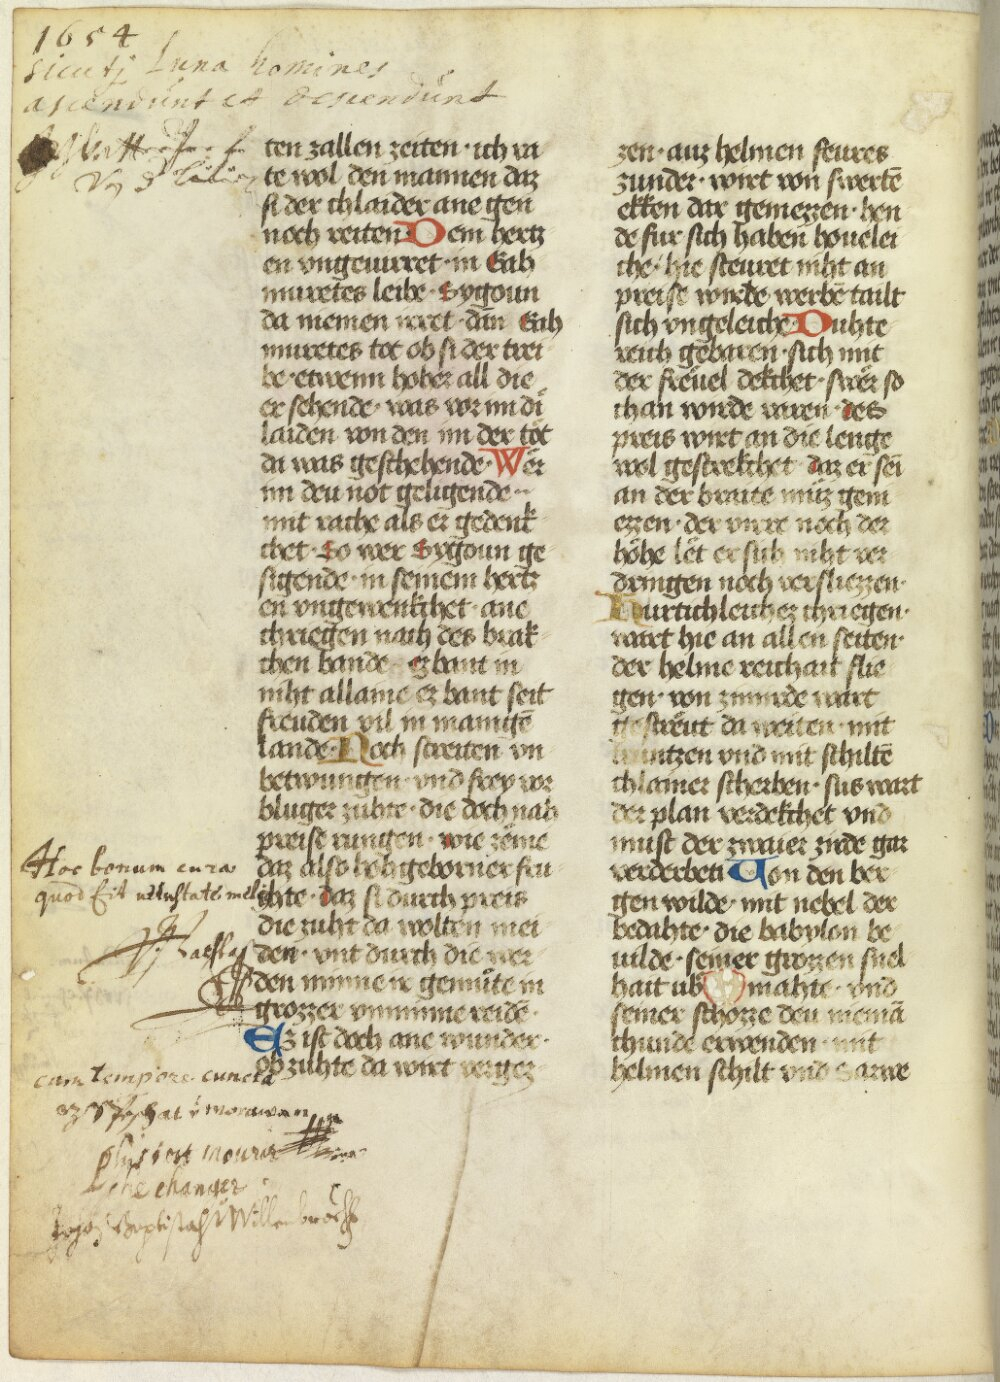 1654
sicuti Luna homines
ascendünt et descendünt
ten zallen zeiten · ich ra
te wol den mannen daz
si der chlaider ane gen
noch reiten · Dem hertz
en vngeuirret · in Gah
muretes leibe · Sygoun
da niemen irret · dan Gah
muretes tot ob si der trei
be · etwenn hoher all die
er sehende · was vor im di
laiden von den im der tot
da was geschehende · Wer
im deu not geligende ·
mit rache als er gedenk
chet · So wer Sygoun ge
sigende · in seinem hertz
en vngewenkchet · ane
chriegen nach des brak
chen bande · ez bant in
niht allaine ez bant seit
freuden vil in manigē
lande · Noch streiten vn
betwungen · vnd frey vor
bluger zuhte · die doch nah
preise rungen · wie zeme
daz also hohgeborner fru
hte · daz si durch preis
die zuht da wolten mei
den · vnt durch die wer
den minne ir gemüte in
grozzer vnminne reidē ·
Ez ist doch ane wunder ·
ob zuhte da wirt vergez
zen · auz helmen feures
zunder · wirt von swertē
ekken dar gemezzen · hen
de fur sich haben houelei
che · hie steuret niht an
preise wirde werbē tailt
sich vngeleiche · Duhte
reich gebaren · sich mit
der freuel dekchet · swer so
chan wirde varen · des
preis wirt an die lenge
wol gestrekchet · daz er sei
an der braite müz geni
ezzen · der virre noch der
höhe let er sich niht ver
dringen noch versliezzen ·
Hurtichleichez chriegen ·
wart hie an allen seiten ·
der helme reichait flie
gen · von zimirde wart
gestreut da weiten · mit
lantzen vnd mit schiltē
chlainer scherben · sus wart
der plan verdekchet vnd
must der zwaier zirde gar
verderben · Von den ber
gen wilde · mit nebel der
bedahte · die babylon be
uilde · seiner grozzen snel
hait ub mahte · vnd
seiner schozze deu niemā
chunde erwenden · mit
helmen schilt vnd Sarwe
Hoc bonum cura
quod fit uetustate
cum tempore cuncta
plus tost mourir
que changer
Johan Baptista Willenbroch